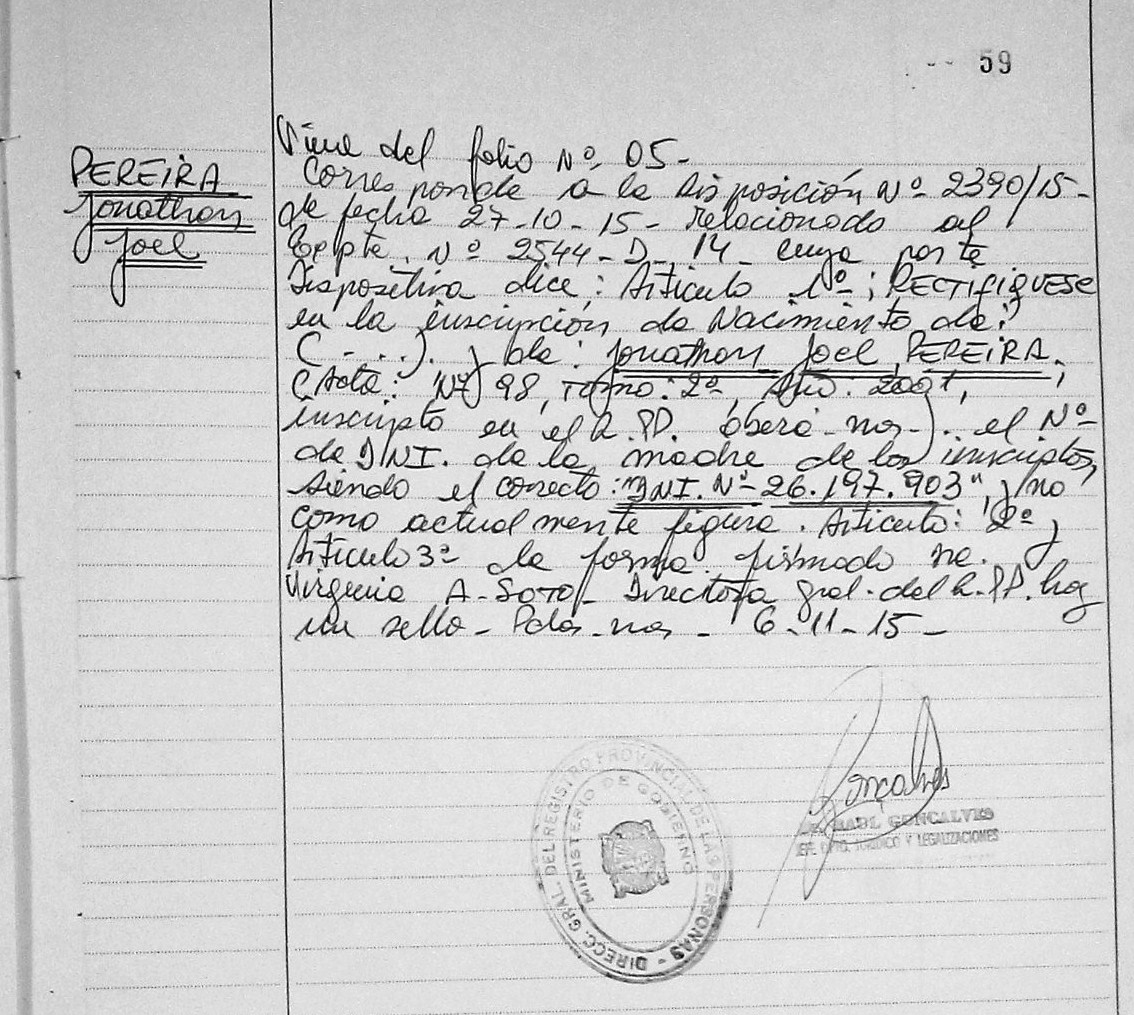 59
PEREIRA
Jonathan
Joel
Viene del folio Nº 05-
Corresponde a la Disposición Nº 2390/15-
de fecha 27-10-15- relacionado al
Expte. Nº 2544-D-14- cuya parte
Dispositiva dice: Articulo 1º: RECTIFIQUESE
en la inscripción de Nacimiento de:
(-...). y de: Jonathan Joel PEREIRA,
(Acta: Nº 98, Tomo: 2º, Año: 2001,
inscripto en el R.PP. Oberá-nes-). el Nº
de DNI. de la madre de los inscriptos,
siendo el correcto: "DNI. Nº 26.197.903", y no
como actualmente figura. Articulo: 2º y
Articulo 3º de forma. firmado
Virginia A. SOTO- Directora Gral. del R.PP. hay
un sello- Pdas-nes- 6-11-15-
Goncalves
RAUL GONCALVES
JEFE DPTO. JURIDICO Y LEGALIZACIONES
DIRECC. GRAL. DEL REGISTRO PROVINCIAL DE LAS PERSONAS -
MINISTERIO DE GOBIERNO